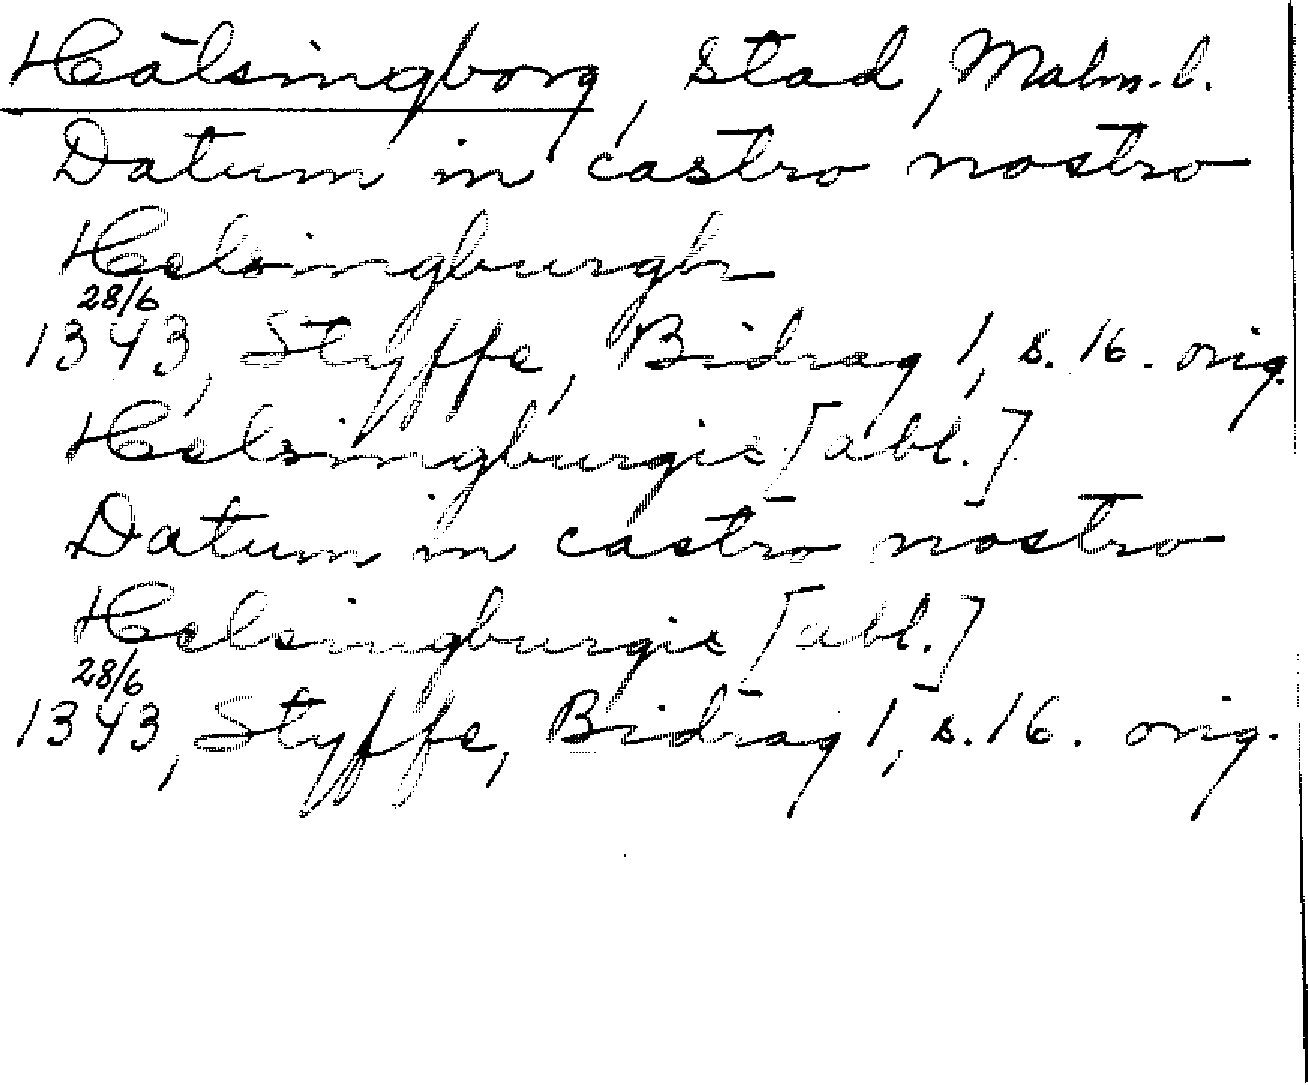 Hälsingborg, stad, Malm. l.
Datum in castro nostro
Helsingburgh
28/6
1343, Styffe, Bidrag 1, s. 16. orig.
Helsingburgis [abl.]
Datum in castro nostro
Helsingburgis [abl.]
28/6
1343, Styffe, Bidrag 1, s. 16. orig.